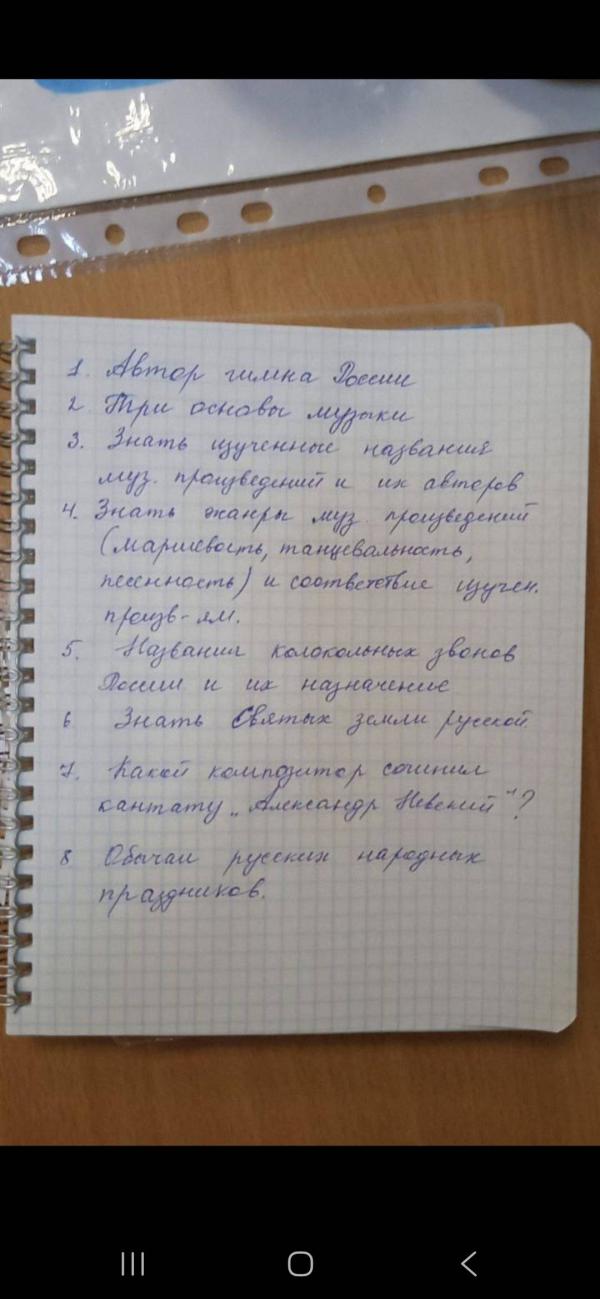 1. Автор гимна России
2. Три основы музыки
3. Знать изученные названия
муз. произведений и их авторов
4. Знать жанры муз. произведений
(маршевость, танцевальность,
песенность) и соответствие изучен.
произв-ям.
5. Названия колокольных звонов
России и их назначение
6 Знать Святых земли русской
7. Какой композитор сочинил
кантату „Александр Невский"?
8 Обычаи русских народных
праздников.